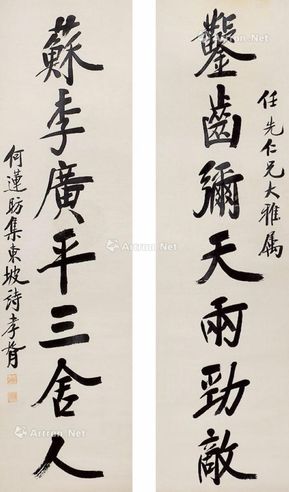 任先仁兄大雅属
鑿齒彌天兩勁敵
蘇李廣平三舍人
何蓮舫集東坡詩 孝胥
Artron.Net
Artron.Net
Artron.Net
Artron.Net